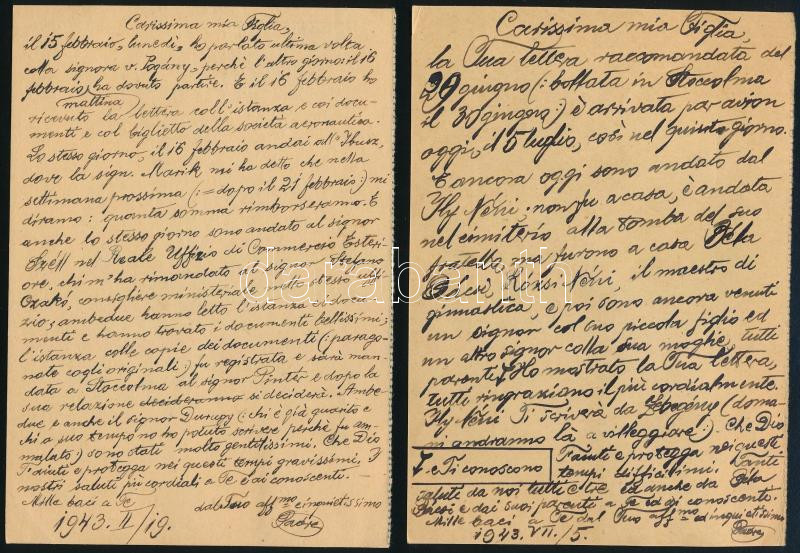 Carissima mia Figlia,
il 15 febbraio, lunedì, ho parlato ultima volta
colla signora v. Pogány, perchè l'altro giorno il 16
febbraio, ha dovuto partire. E il 16 febbraio ho
mattina
ricevuto la lettera coll'istanza e coi docu-
menti e col biglietto della società aeronautica.
Lo stesso giorno, il 16 febbraio andai all'
dove la sign. Marik mi ha detto che nella
settimana prossima (:= dopo il 21 febbraio:) mi
diranno: quanta somma rimborseranno. E
anche lo stesso giorno sono andato al signor
nel Reale Uffizio di Commercio Esteri-
ore, chi m'ha rimandato al signor Stefano
Czakó, consigliere ministeriale nello stesso uffi-
zio; ambedue hanno letto l'istanza e i docu-
menti e hanno trovato i documenti bellissimi;
l'istanza colle copie dei documenti (: parago-
nate cogli originali:) fu registrata e sarà man-
data a Stoccolma al signor Pinter e dopo la
sua relazione decideranno si deciderà. Ambe-
due e anche il signor (: chi è già guarito e
chi a suo tempo no ho potuto scrivere perchè fu am-
malato:) sono stati molto gentilissimi. Che Dio
T'aiuti e protegga nei questi tempi gravissimi. I
nostri saluti più cordiali a Te e ai conoscenti.
Mille baci a Te
dal Tuo affmo e inquietissimo
1943. II/19. Padre
Carissima mia Figlia,
la Tua lettera raccomandata del
29 giugno (: bollata in Stoccolma
il 30 giugno:) è arrivata par avion
oggi, il 5 luglio, così nel quinto giorno.
E ancora oggi sono andato dal
Néni; non fu a casa, è andata
nel cimiterio alla tomba del suo
fratello, ma furono a casa Béla
Néni, il maestro di
ginnastica, e poi sono ancora venuti
un signor col suo piccola figlio ed
un altro signor colla sua moglie, tutti
parenti. 7 Ho mostrato la Tua lettera,
tutti ringraziano il più cordialmente.
Néni Ti scriverà da Zebegény (doma-
ni andranno là a villeggiare:). Che Dio
7 e Ti conoscono T'aiuti e protegga nei questi
tempi difficilimi. Tanti
saluti da noi tutti e tre ed anche da Béla
e dai suoi parenti a Te ed ai conoscenti.
Mille baci a Te dal Tuo affmo ed inquietissimo
1943. VII./5. Padre
darabanth